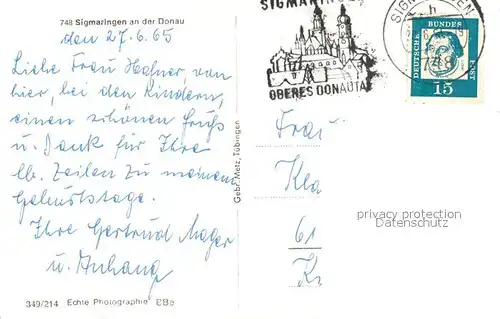 748 Sigmaringen an der Donau
den 27.6.65
Liebe Frau Hafner, von
hier, bei den Kindern,
einen schönen Gruß
u. Dank für Ihre
lb. Zeilen zu meinem
Geburtstage.
Ihre Gertrud Mayer
u. Anhang
349/214 Echte Photographie
Gebr. Metz, Tübingen
SIGMARINGEN
OBERES DONAUTAL
SIGMARINGEN
h
748
DEUTSCHE BUNDESPOST
15
Frau
Kla
61
K
privacy protection
Datenschutz